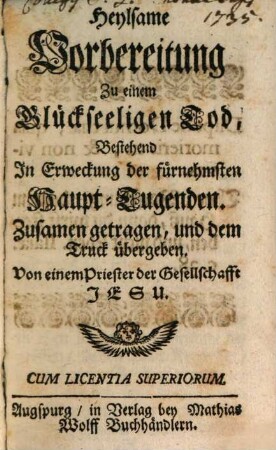 1735.
Heylsame
Vorbereitung
Zu einem
Glückseeligen Tod,
Bestehend
In Erweckung der fürnehmsten
Haupt-Tugenden.
Zusamen getragen, und dem
Truck übergeben.
Von einem Priester der Gesellschafft
JESU.
CUM LICENTIA SUPERIORUM.
Augspurg / in Verlag bey Mathias
Wolff Buchhändlern.